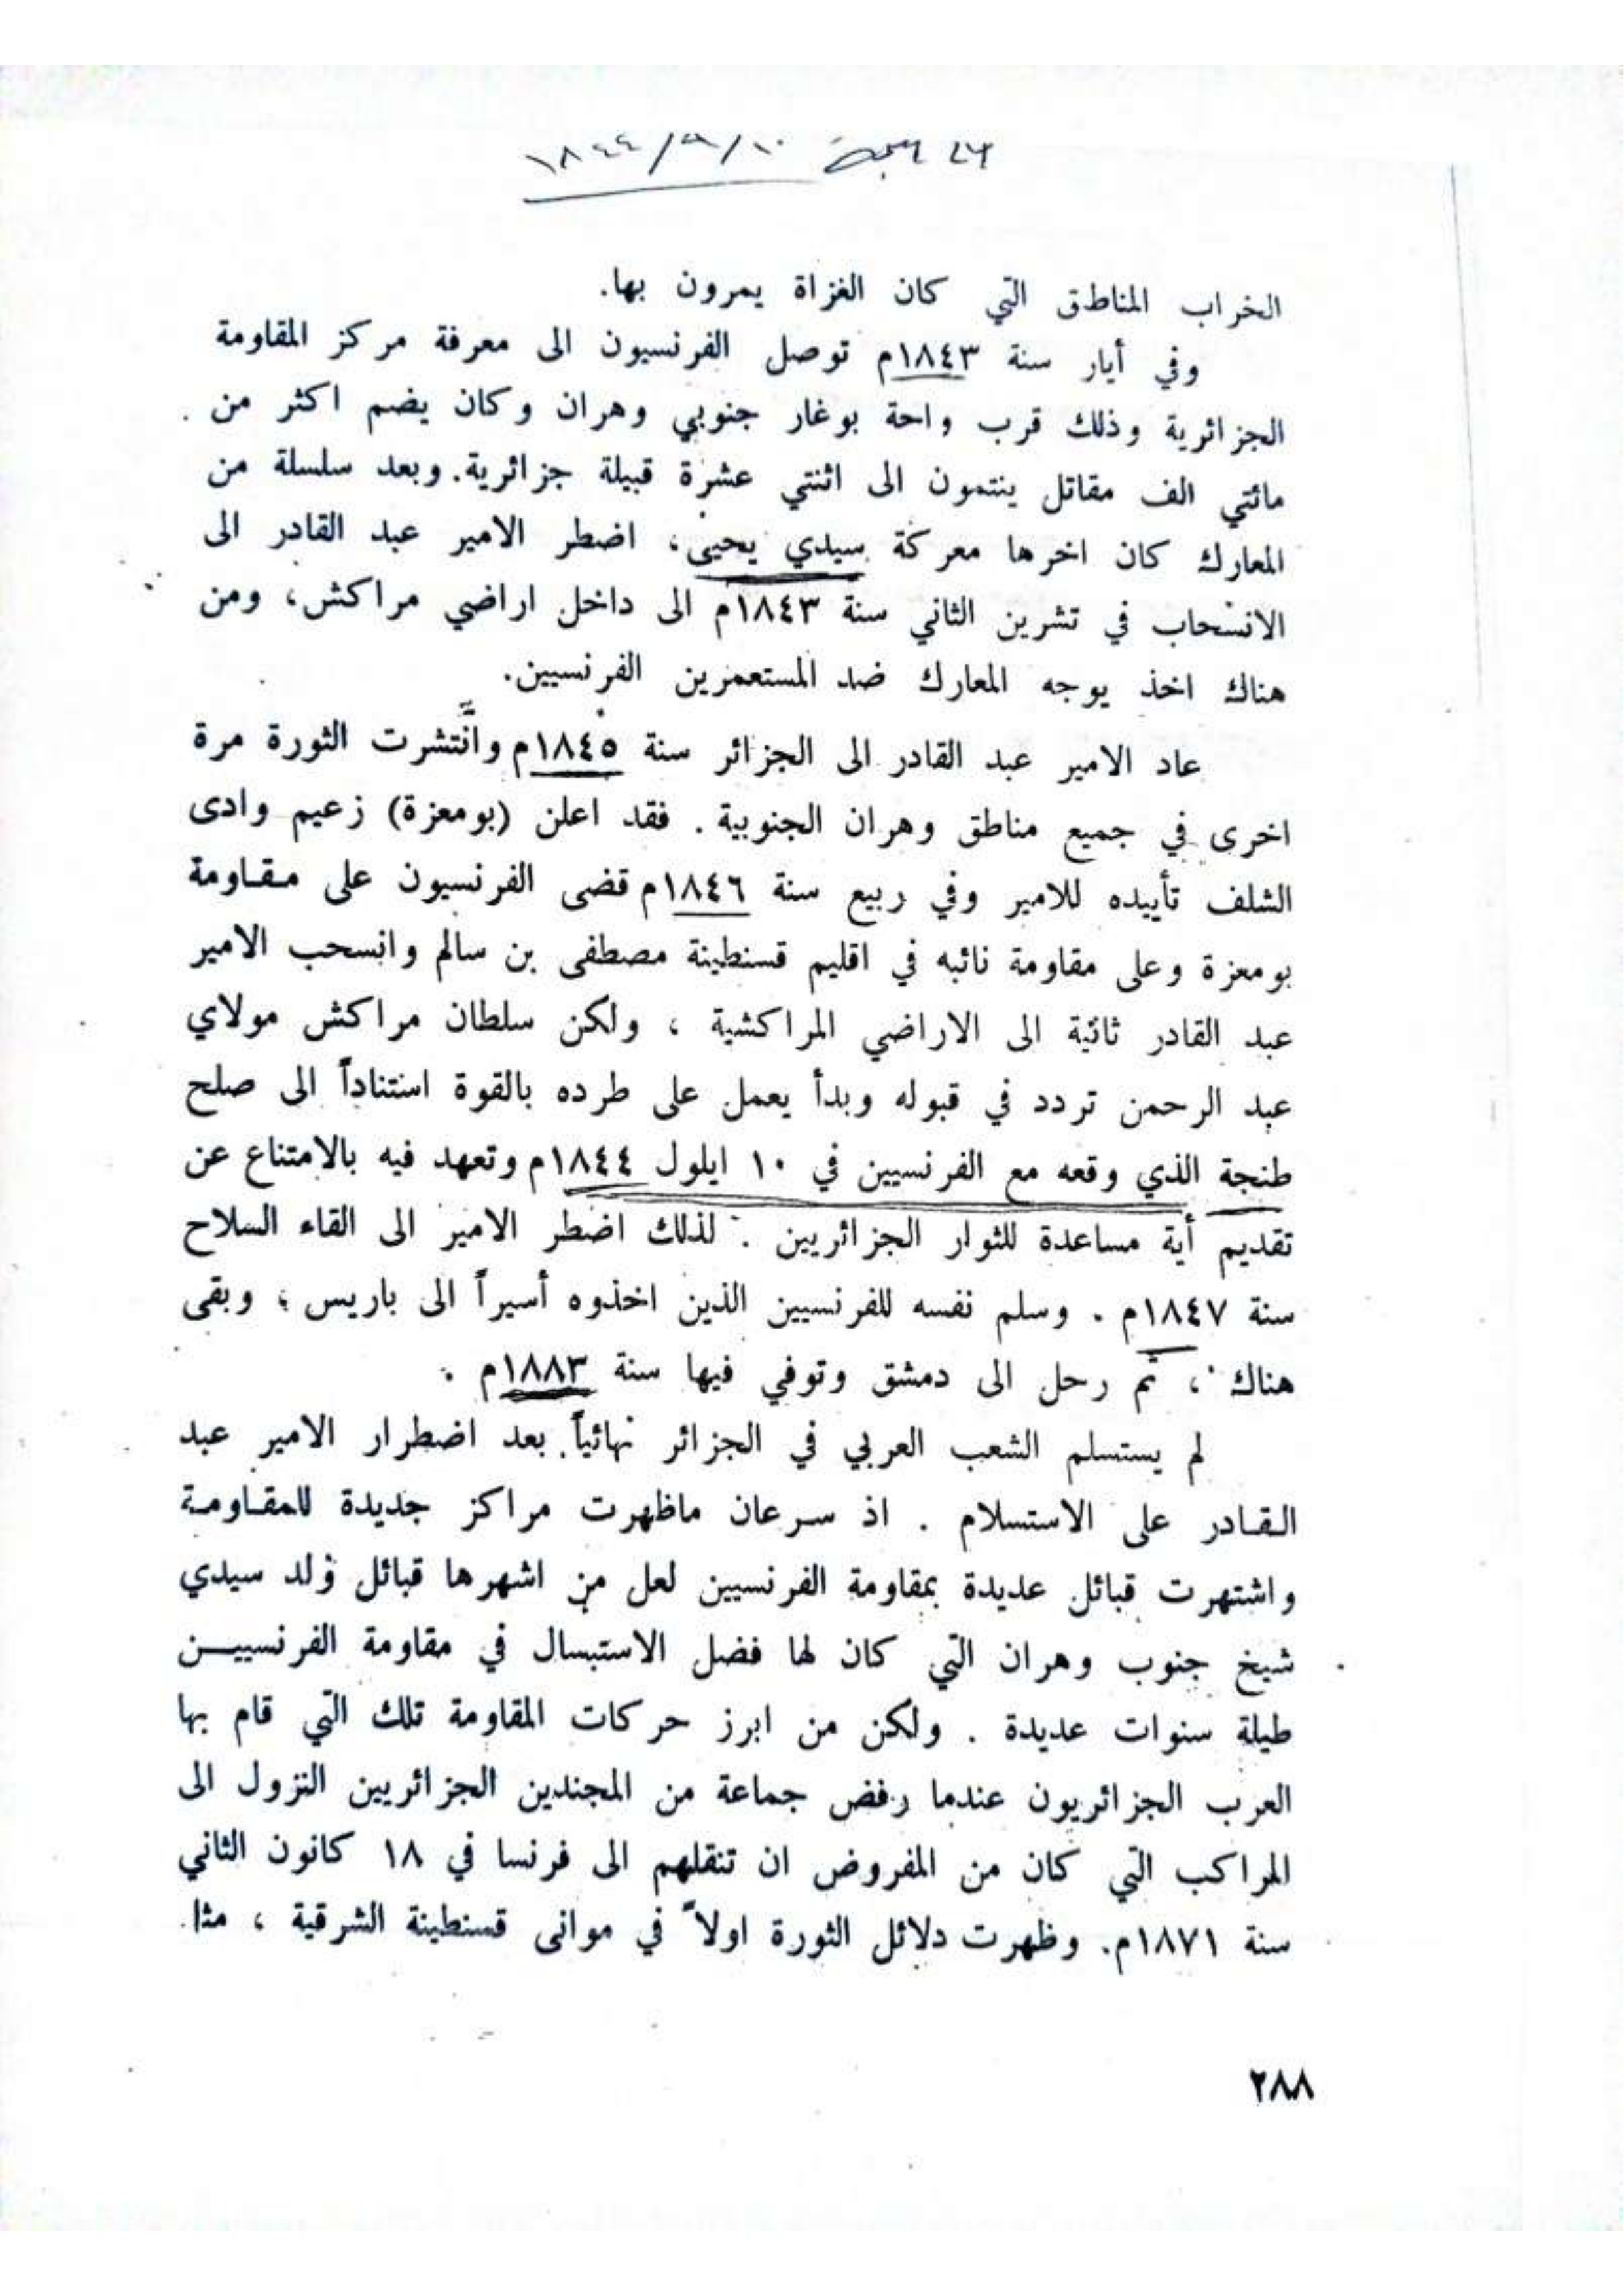 ١٠/٩/١٨٤٤
الخراب المناطق التي كان الغزاة يمرون بها.
وفي أيار سنة ١٨٤٣م توصل الفرنسيون الى معرفة مركز المقاومة
الجزائرية وذلك قرب واحة بوغار جنوبي وهران وكان يضم اكثر من
مائتي الف مقاتل ينتمون الى اثنتي عشرة قبيلة جزائرية. وبعد سلسلة من
المعارك كان اخرها معركة سيدي يحيى، اضطر الامير عبد القادر الى
الانسحاب في تشرين الثاني سنة ١٨٤٣م الى داخل اراضي مراكش، ومن
هناك اخذ يوجه المعارك ضد المستعمرين الفرنسيين.
عاد الامير عبد القادر الى الجزائر سنة ١٨٤٥م وانتشرت الثورة مرة
اخرى في جميع مناطق وهران الجنوبية . فقد اعلن (بومعزة) زعيم وادى
الشلف تأييده للامير وفي ربيع سنة ١٨٤٦م قضى الفرنسيون على مقاومة
بومعزة وعلى مقاومة نائبه في اقليم قسنطينة مصطفى بن سالم وانسحب الامير
عبد القادر ثانية الى الاراضي المراكشية ، ولكن سلطان مراكش مولاي
عبد الرحمن تردد في قبوله وبدأ يعمل على طرده بالقوة استناداً الى صلح
طنجة الذي وقعه مع الفرنسيين في ١٠ ايلول ١٨٤٤م وتعهد فيه بالامتناع عن
تقديم أية مساعدة للثوار الجزائريين . لذلك اضطر الامير الى القاء السلاح
سنة ١٨٤٧م . وسلم نفسه للفرنسيين الذين اخذوه أسيراً الى باريس ، وبقى
هناك ، ثم رحل الى دمشق وتوفي فيها سنة ١٨٨٣م .
لم يستسلم الشعب العربي في الجزائر نهائياً بعد اضطرار الامير عبد
القادر على الاستسلام . اذ سرعان ماظهرت مراكز جديدة للمقاومة
واشتهرت قبائل عديدة بمقاومة الفرنسيين لعل من اشهرها قبائل ولد سيدي
شيخ جنوب وهران التي كان لها فضل الاستبسال في مقاومة الفرنسيين
طيلة سنوات عديدة . ولكن من ابرز حركات المقاومة تلك التي قام بها
العرب الجزائريون عندما رفض جماعة من المجندين الجزائريين النزول الى
المراكب التي كان من المفروض ان تنقلهم الى فرنسا في ١٨ كانون الثاني
سنة ١٨٧١م. وظهرت دلائل الثورة اولاً في موانى قسنطينة الشرقية ، مثل
٢٨٨